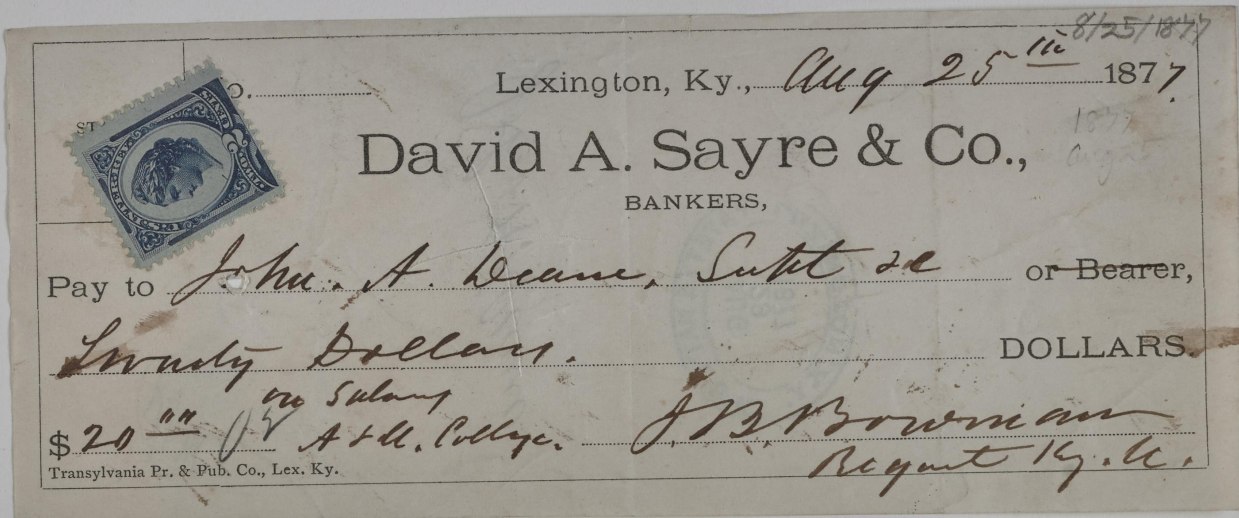 8/25/1877
Lexington, Ky., Aug 25th 1877.
David A. Sayre & Co.,
BANKERS,
Pay to John. A. Deane, Supt &c or Bearer,
Twenty Dollars. DOLLARS.
on Salary
$20 "" A & M. College. J. B. Bowman
Regent Ky. U.
Transylvania Pr. & Pub. Co., Lex. Ky.